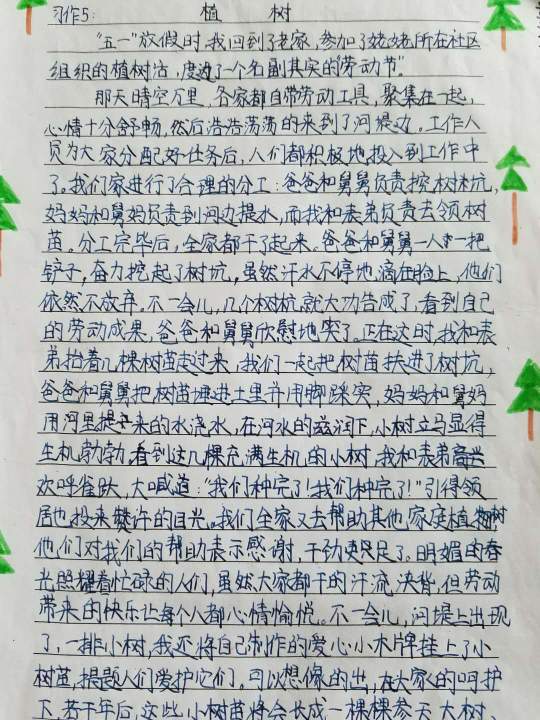 习作5: 植 树
"五一"放假时,我回到了老家,参加了姥姥所在社区
组织的植树活,度过了一个名副其实的劳动节"。
那天晴空万里,各家都自带劳动工具,聚集在一起,
心情十分舒畅,然后浩浩荡荡的来到了河堤边。工作人
员为大家分配好任务后,人们都积极地投入到工作中
了。我们家进行了合理的分工:爸爸和舅舅负责挖树坑,
妈妈和舅妈负责到河边提水,而我和表弟负责去领树
苗。分工完毕后,全家都干了起来。爸爸和舅舅一人一把
铲子,奋力挖起了树坑,虽然汗水不停地滴在脸上,他们
依然不放弃。不一会儿,几个树坑就大功告成了,看到自己
的劳动成果,爸爸和舅舅欣慰地笑了。正在这时,我和表
弟抬着几棵树苗走过来,我们一起把树苗扶进了树坑,
爸爸和舅舅把树苗埋进土里并用脚踩实,妈妈和舅妈
用河里提来的水浇水,在河水的滋润下,小树立马显得
生机勃勃,看到这几棵充满生机的小树,我和表弟高兴
欢呼雀跃,大喊道:"我们种完了!我们种完了!"引得领
居也投来赞许的目光。我们全家又去帮助其他家庭植树
他们对我们的帮助表示感谢,干劲更足了。明媚的春
光照耀着忙碌的人们,虽然大家都干的汗流浃背,但劳动
带来的快乐让每个人都心情愉悦。不一会儿,河堤上出现
了一排小树,我还将自己制作的爱心小木牌挂上了小
树苗,提题人们爱护它们。可以想像的出,在大家的呵护
下,若干年后,这些小树苗将会长成一棵棵参天大树,